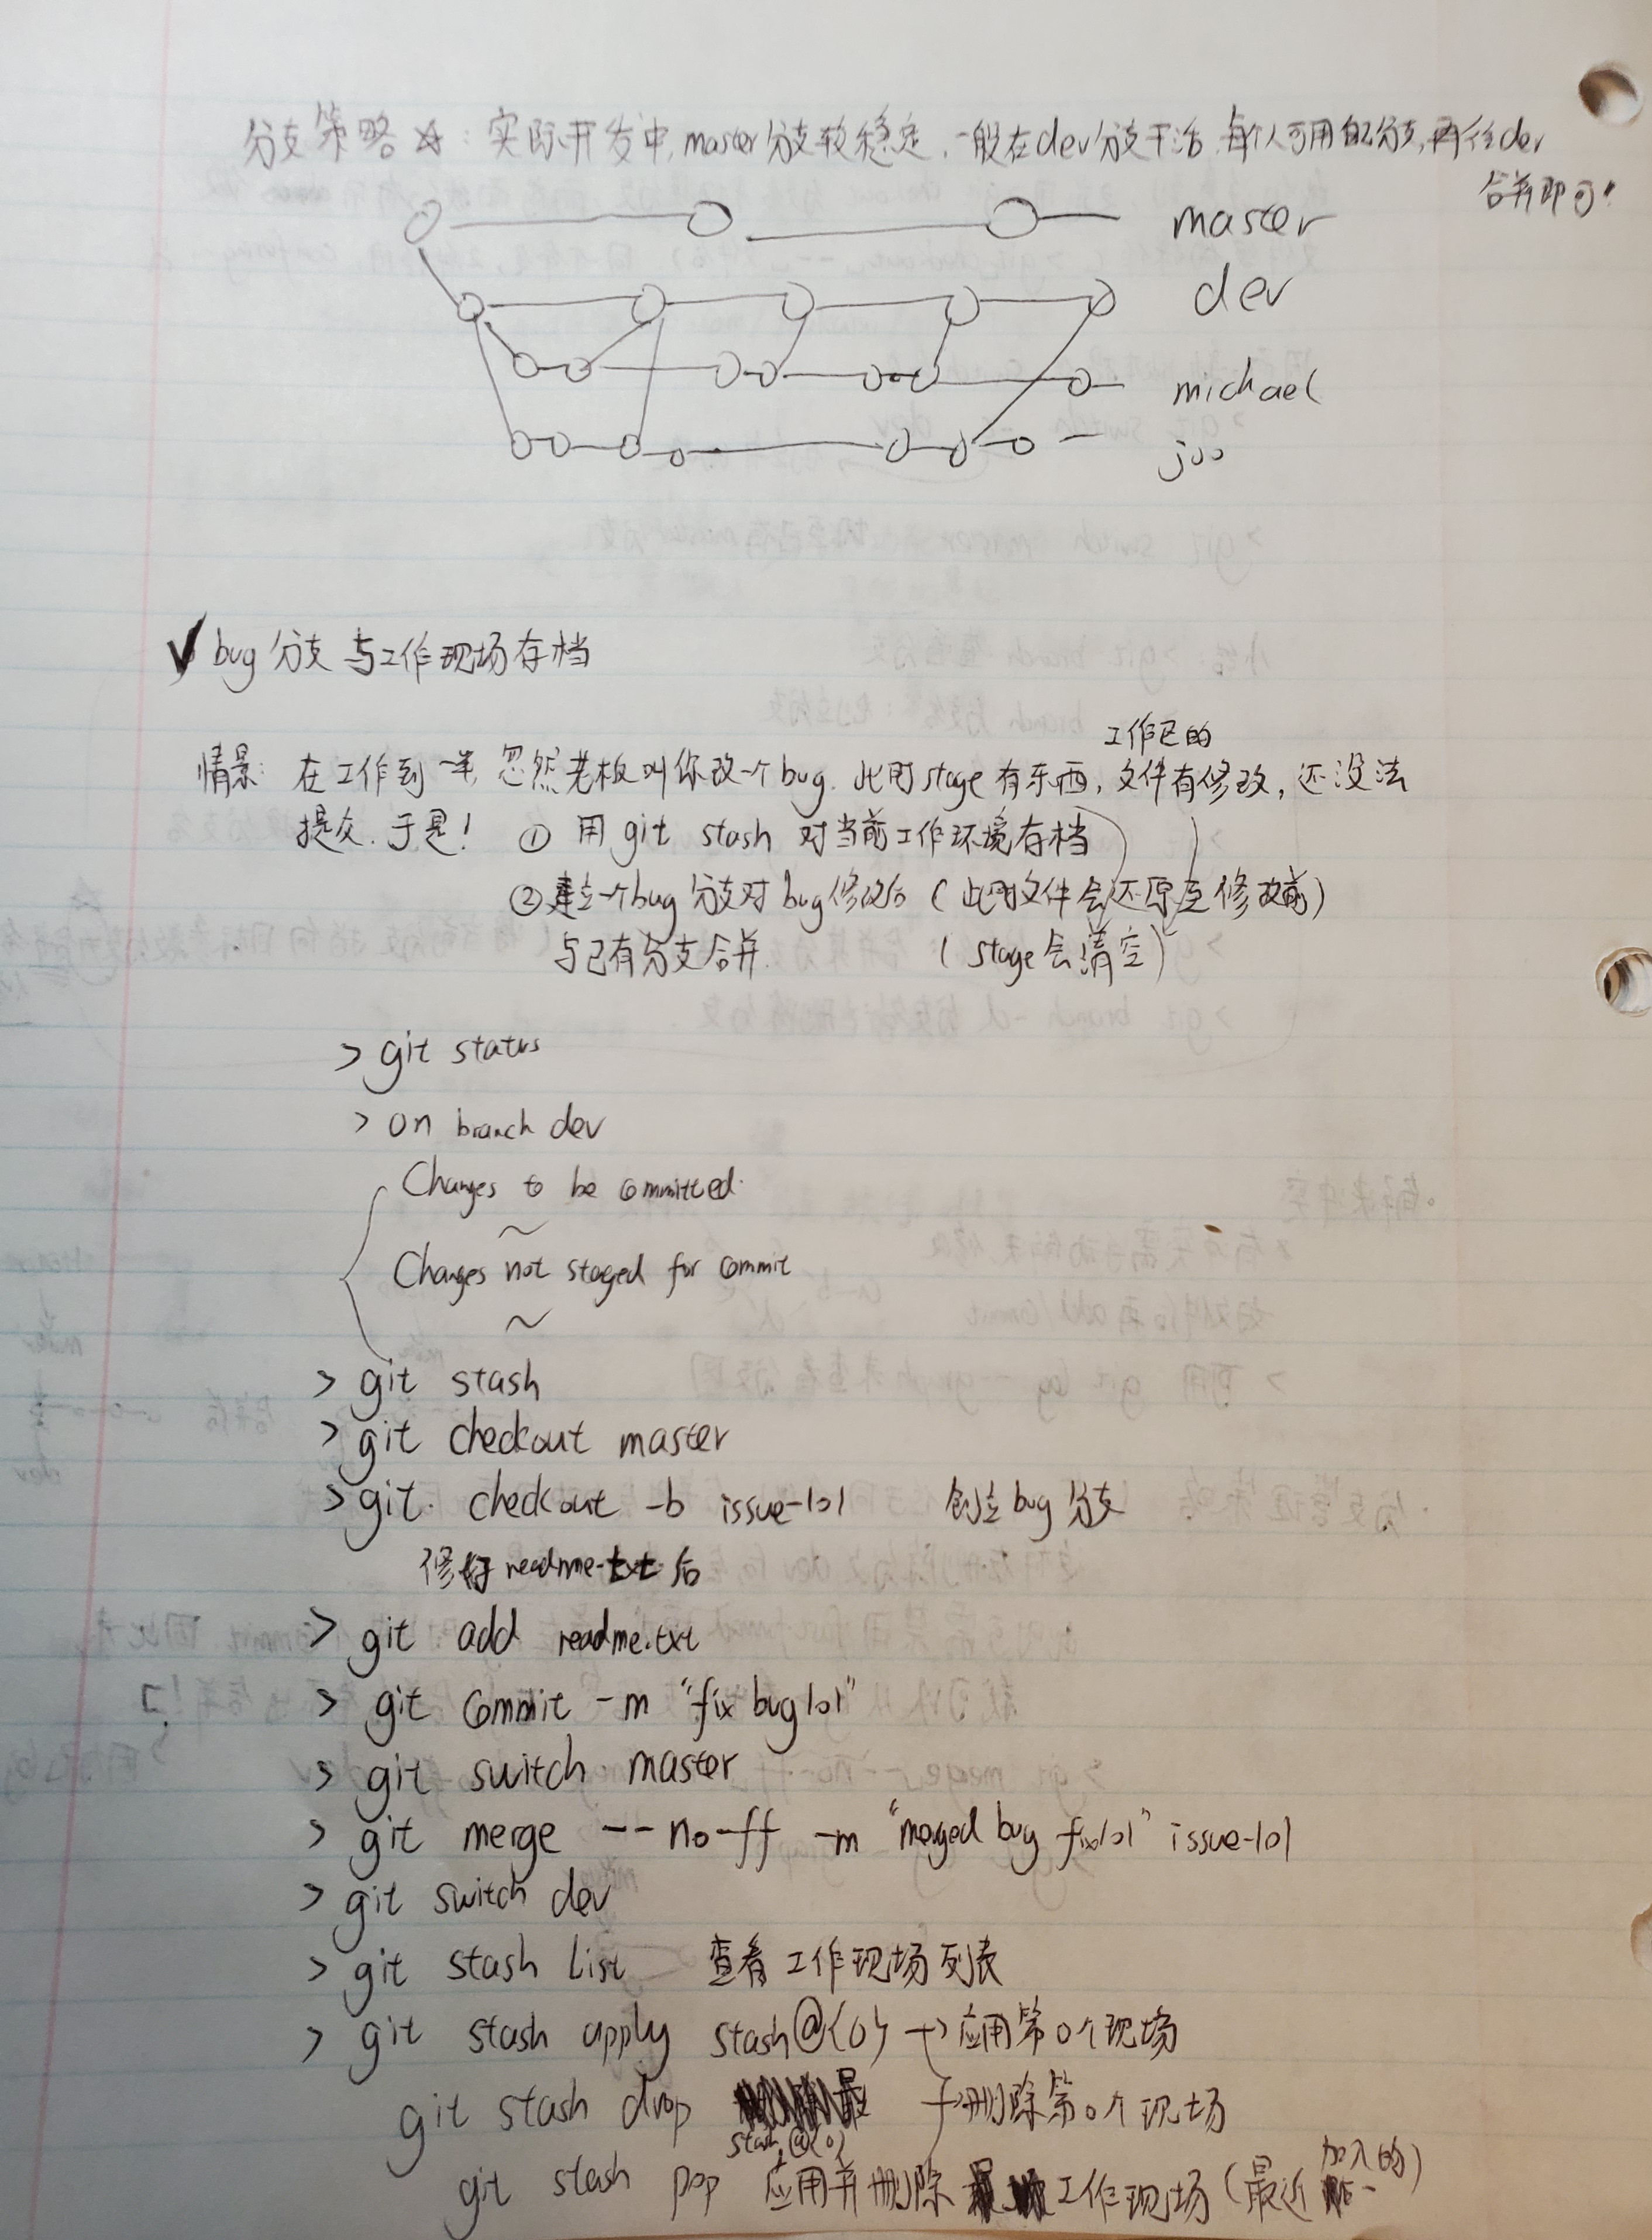 分支策略☆: 实际开发中, master分支较稳定, 一般在dev分支干活 每个人可用自己分支, 再往dev
合并即可!
master
dev
michael
joo
✓ bug分支与工作现场存档
工作区的
情景: 在工作到一半, 忽然老板叫你改一个bug. 此时stage有东西, 文件有修改, 还没法
提交. 于是! ① 用 git stash 对当前工作环境存档
②建立一个bug分支对bug修改后 (此时文件会还原至修改前)
与已有分支合并. (stage会清空)
> git status
> on branch dev
Changes to be committed.
~
Changes not staged for commit
~
> git stash
> git checkout master
> git. checkout -b issue-101 创立bug分支
修好readme.txt后
> git add readme.txt
> git commit -m "fix bug101"
> git switch master
> git merge --no-ff -m "merged bug fix101" issue-101
> git switch dev
> git stash list 查看工作现场列表
> git stash apply stash@{0} → 应用第0个现场
git stash drop → 删除第0个现场
stash@{0}
git stash pop 应用并删除 工作现场 (最近加入的)